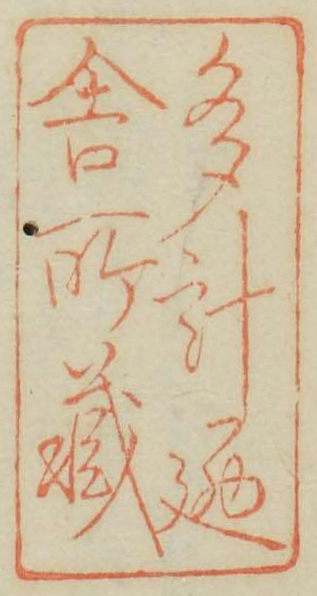 多計廼
舎所藏